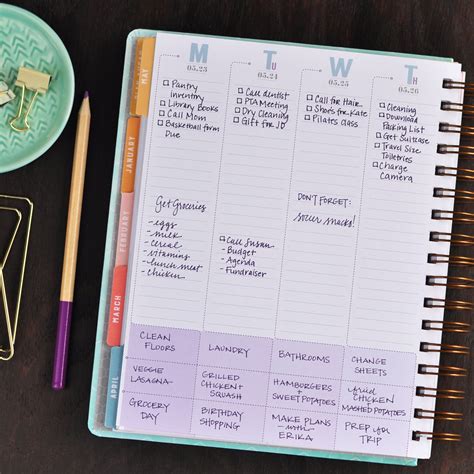 M
05.23
☐ Pantry
inventory
☐ Library Books
☐ Call Mom
☐ Basketball form
Due
Get Groceries
- eggs
- milk
- cereal
- vitamins
- lunch meat
- chicken
CLEAN
FLOORS
VEGGIE
LASAGNA
GROCERY
DAY
TU
05.24
☐ Call dentist
☐ PTA Meeting
☐ Dry Cleaning
☐ Gift for JD
☐ Call Susan
- Budget
- Agenda
- Fundraiser
LAUNDRY
GRILLED
CHICKEN +
SQUASH
BIRTHDAY
SHOPPING
W
05.25
☐ Call for Hair
☐ Shorts for Kate
☐ Pilates class
DON'T FORGET:
soccer snacks!
BATHROOMS
HAMBURGERS +
SWEET POTATOES
MAKE PLANS
-with-
ERIKA
TH
05.26
☐ Cleaning
☐ Download
Packing List
☐ Get Suitcase
☐ Travel Size
Toiletries
☐ Charge
Camera
CHANGE
SHEETS
fried
CHICKEN
MASHED POTATOES
PREP for
TRIP
MAY
JANUARY
FEBRUARY
MARCH
APRIL